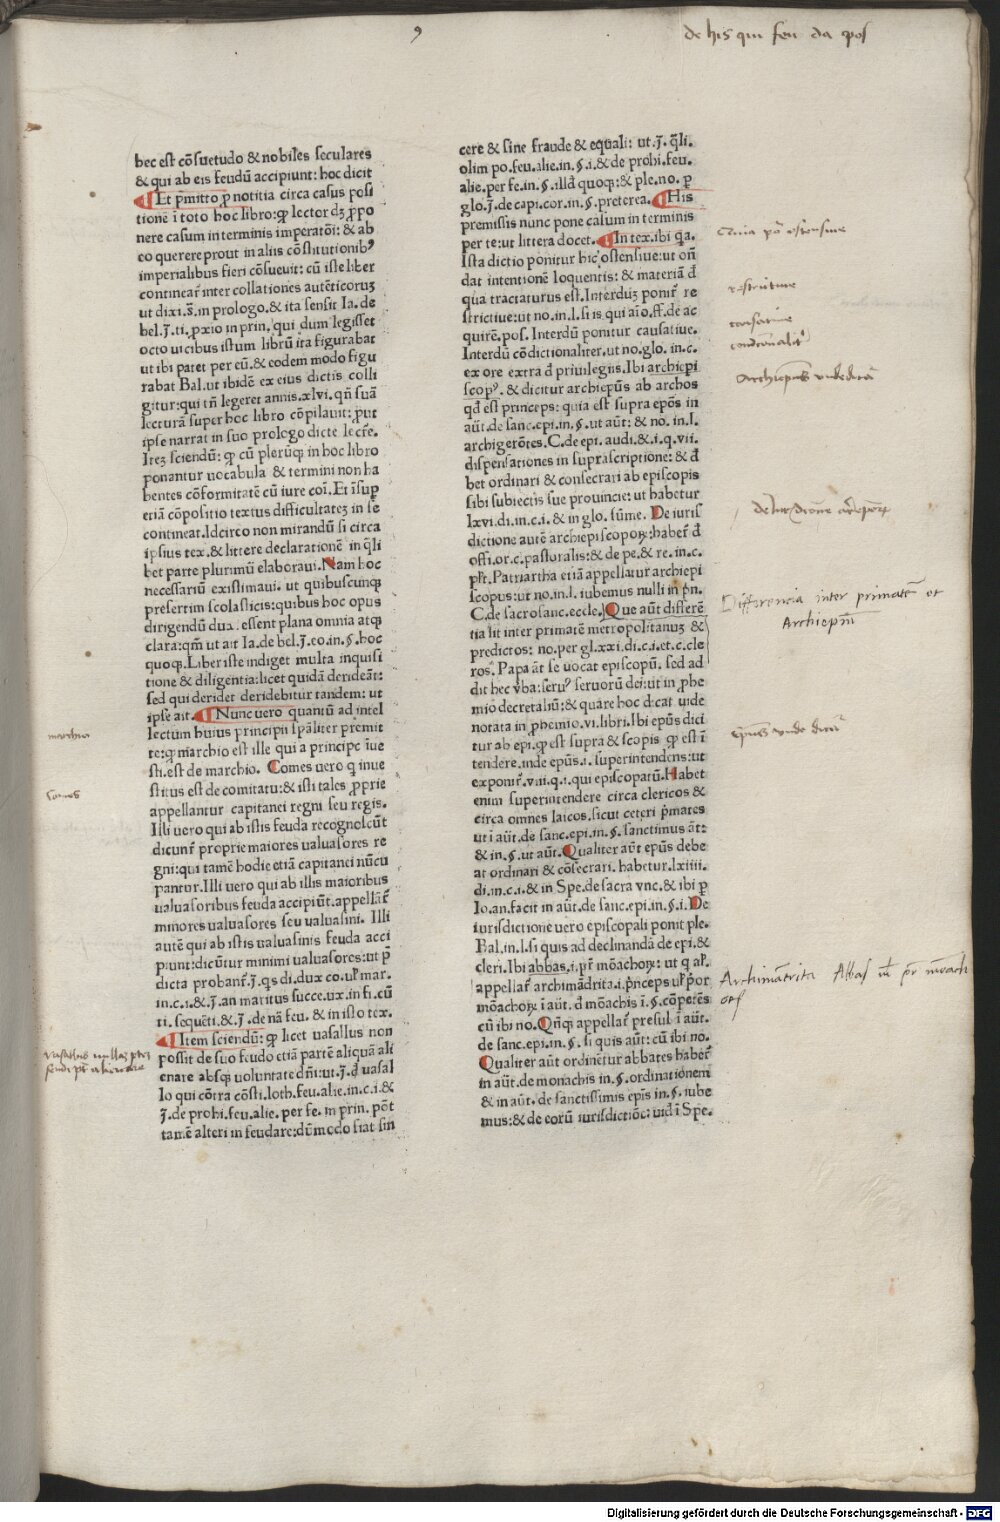 9
de his qui feu da pos
hec est cõsuetudo & nobiles seculares
& qui ab eis feudũ accipiunt: hoc dicit
¶Et p̃mitto ꝓ notitia circa casus posi
tionẽ ĩ toto hoc libro: ꝙ lector dʒ ꝓpo
nere casum in terminis imperatoĩ: & ab
eo querere prout in aliis cõstitutionibꝰ
imperialibus fieri cõsueuit: cũ iste liber
contineat᷑ inter collationes autẽticoruʒ
ut dixi.s̃.in prologo.& ita sensit Ia. de
bel.J̃.ti.ꝓxio in prin. qui dum legisset
octo uicibus istum librũ ita figurabat
ut ibi patet per eũ.& eodem modo figu
rabat Bal.ut ibidẽ ex eius dictis colli
gitur:qui tñ legeret annis.xlvi. qñ suã
lecturã super hoc libro cõpilauit: ꝓut
ipse narrat in suo prologo dicte lectr̃e.
Iteʒ sciendũ: ꝙ cũ plerũꝗ in hoc libro
ponantur uocabula & termini non ha
bentes cõformitatẽ cũ iure coĩ. Et ĩsup̱
etiã cõpositio textus difficultateʒ in se
contineat.Idcirco non mirandũ si circa
ipsius tex.& littere declarationẽ in q̃li
bet parte plurimũ elaboraui. Nam hoc
necessariũ existimaui. ut quibuscunꝗ
presertim scolasticis:quibus hoc opus
dirigendũ duxi essent plana omnia atꝗ
clara:qm̃ ut ait Ia.de bel.J̃.eo.in.§.hoc
quoꝗ.Liber iste indiget multa inquisi
tione & diligentia:licet quidã derideãt:
sed qui deridet deridebitur tandem: ut
ipse ait.¶Nunc uero quantũ ad intel
lectum huius principii sp̃aliter premit
te:ꝙ marchio est ille qui a principe ĩue
sti.est de marchio. Comes uero ꝙ inue
stitus est de comitatu:& isti tales ꝓprie
appellantur capitanei regni seu regis.
Illi uero qui ab istis feuda recognoscũt
dicunt᷑ proprie maiores ualuasores re
gni:qui tamẽ hodie etiã capitanei nũcu
pantur.Illi uero qui ab illis maioribus
ualuasoribus feuda accipiũt.appellat᷑
minores ualuasores seu ualuasini. Illi
autẽ qui ab istis ualuasinis feuda acci
piunt:dicũtur minimi ualuasores:ut p̃
dicta probant᷑.J̃.qs di.dux co.ul̃ mar.
in.c.i.& J̃.an maritus succe.ux.in fi.cũ
ti. sequẽti.& J̃.de nã feu.& in isto tex.
¶Item sciendũ: ꝙ licet uasallus non
possit de suo feudo etiã partẽ aliquã ali
enare absꝗ uoluntate dñi:ut.J̃.ď uasal
lo qui cõtra cõsti.loth.feu.alie.in.c.i.&
J̃.de prohi.feu.alie. per fe. in prin. põt
tamẽ alteri in feudare:dũmodo fiat sin
marchio
Comes
cere & sine fraude & equali: ut.J̃.q̃li.
olim po.feu.alie.in.§.i.& de prohi.feu.
alie.per fe.in.§.illď quoꝗ:& ple.no. ꝑ
glo.J̃.de capi.cor.in.§.preterea.¶His
premissis nunc pone casum in terminis
per te:ut littera docet.¶In tex.ibi q̃a.
Ista dictio ponitur hic ostensiue:ut oñ
dat intentionẽ loquentis: & materiã ď
qua tractaturus est.Interduʒ ponit᷑ re
strictiue:ut no.in.l.si is qui aĩo.ff.de ac
quirẽ.pos. Interdũ ponitur causatiue.
Interdũ cõdictionaliter.ut no.glo. in.c.
ex ore extra ď priuilegiis.Ibi archiepi
scopꝰ. & dicitur archiepũs ab archos
qď est princeps: quia est supra ep̃os in
aũt.de sanc.epi.in.§.ut aũt: & no. in.l.
archigerõtes.C.de epi. audi.& .i.q.vii.
dispensationes in suprascriptione: & ď
bet ordinari & consecrari ab episcopis
sibi subiectis sue prouincie: ut habetur
lxvi.di.in.c.i. & in glo. sũme. De iuris
dictione autẽ archiepiscopoꝝ:habet᷑ ď
offi.or.c.pastoralis:& de pe.& re. in.c.
pr̃t. Patriartha etiã appellatur archiepi
scopus:ut no.in.l. iubemus nulli in p̃n.
C.de sacrosanc.eccle.Que aũt differẽ
tia sit inter primatẽ metropolitanuʒ &
predictos: no.per gl.xxi.di.c.i.et.c.cle
ros. Papa ãt se uocat episcopũ. sed ad
dit hec v̓ba:seruꝰ seruorũ dei:ut in ꝓhe
mio decretaliũ:& quare hoc dicat uide
notata in ꝓhemio.vi.libri.Ibi epũs dici
tur ab epi.ꝙ est supra & scopis ꝙ est ĩ
tendere.inde epũs.i.superintendens:ut
exponit᷑.viii.q.i.qui episcopatũ.Habet
enim superintendere circa clericos &
circa omnes laicos.sicut ceteri p̃mates
ut ĩ aũt.de sanc.epi.in.§.sanctimus ãt:
& in.§.ut aũt.Qualiter aũt epũs debe
at ordinari & cõsecrari. habetur.lxiiii.
di.in.c.i.& in Spe.de sacra vnc.& ibi ꝑ
Io.an.facit in aũt.de sanc.epi.in.§.i.De
iurisdictione uero episcopali ponit ple.
Bal.in.l.si quis ad declinandã de epi.&
cleri.Ibi abbas.i.pr̃ mõachoꝝ: ut q al̃.
appellat᷑ archimãdrita.i.p̃nceps ul̃ p̃or
mõachoꝝ ĩ aũt. ď mõachis ĩ.§.cõpetẽs
cũ ibi no.Qñꝗ appellat᷑ presul ĩ aũt.
de sanc.epi.in.§. si quis aũt: cũ ibi no.
Qualiter aũt ordinẽtur abbates habet᷑
in aũt.de monachis in.§.ordinationem
& in aũt. de sanctissimis epis in.§.iube
mus:& de eorũ iurisdictiõe:uid ĩ Spe.
Differencia inter primatẽ et
Archiepm̃
epũs vnde dicit᷑
Archimãtrita Abbas
Digitalisierung gefördert durch die Deutsche Forschungsgemeinschaft - DFG